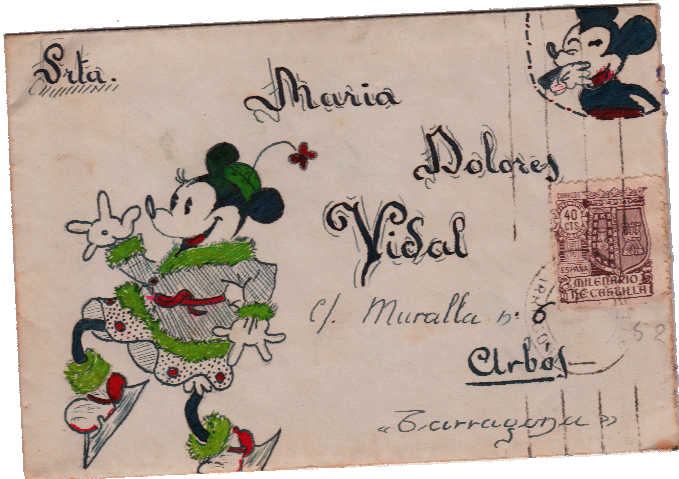 Srta.
Maria
Dolores
Vidal
c/. Muralla nº 6
Arbós
"Tarragona"
CORREOS
40
CTS
ESPAÑA
MILENARIO
DE CASTILLA
52